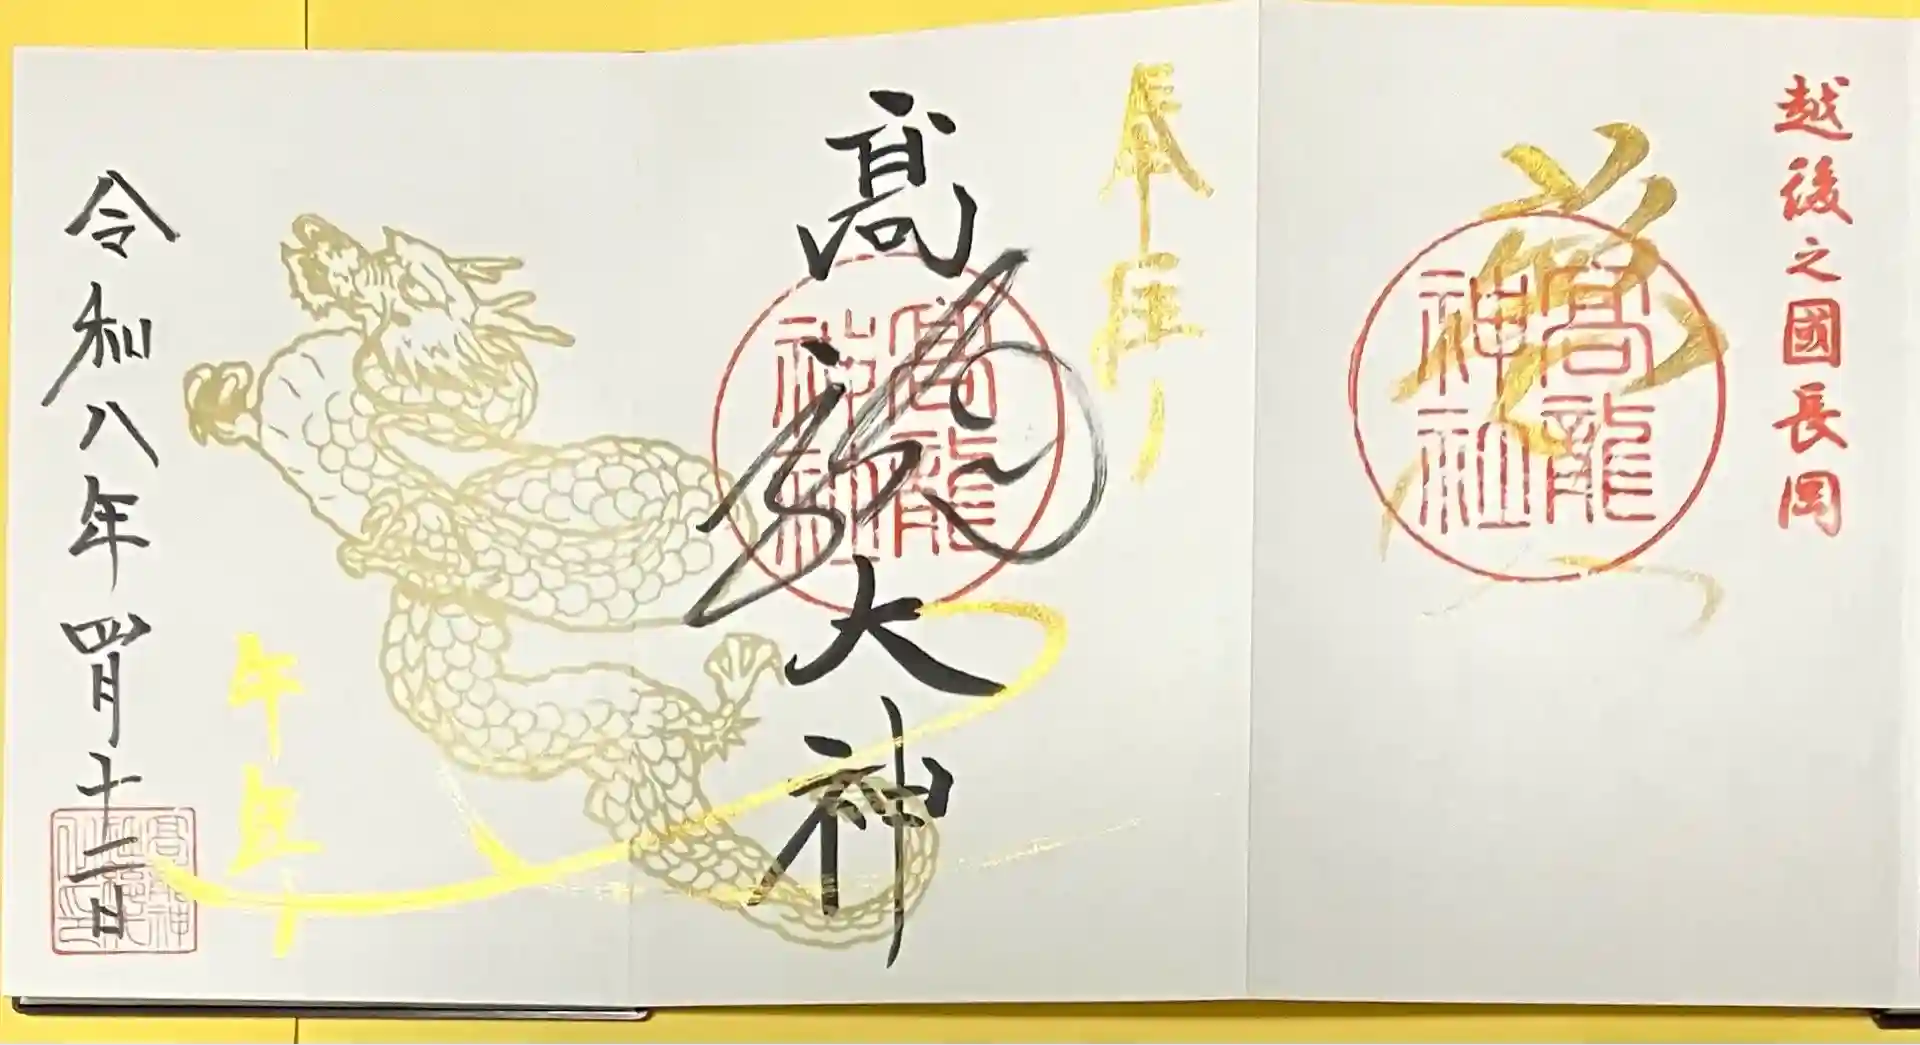 越後之國長岡
髙龍神社
奉拝
髙龍大神
髙龍神社
午年
令和八年四月十二日